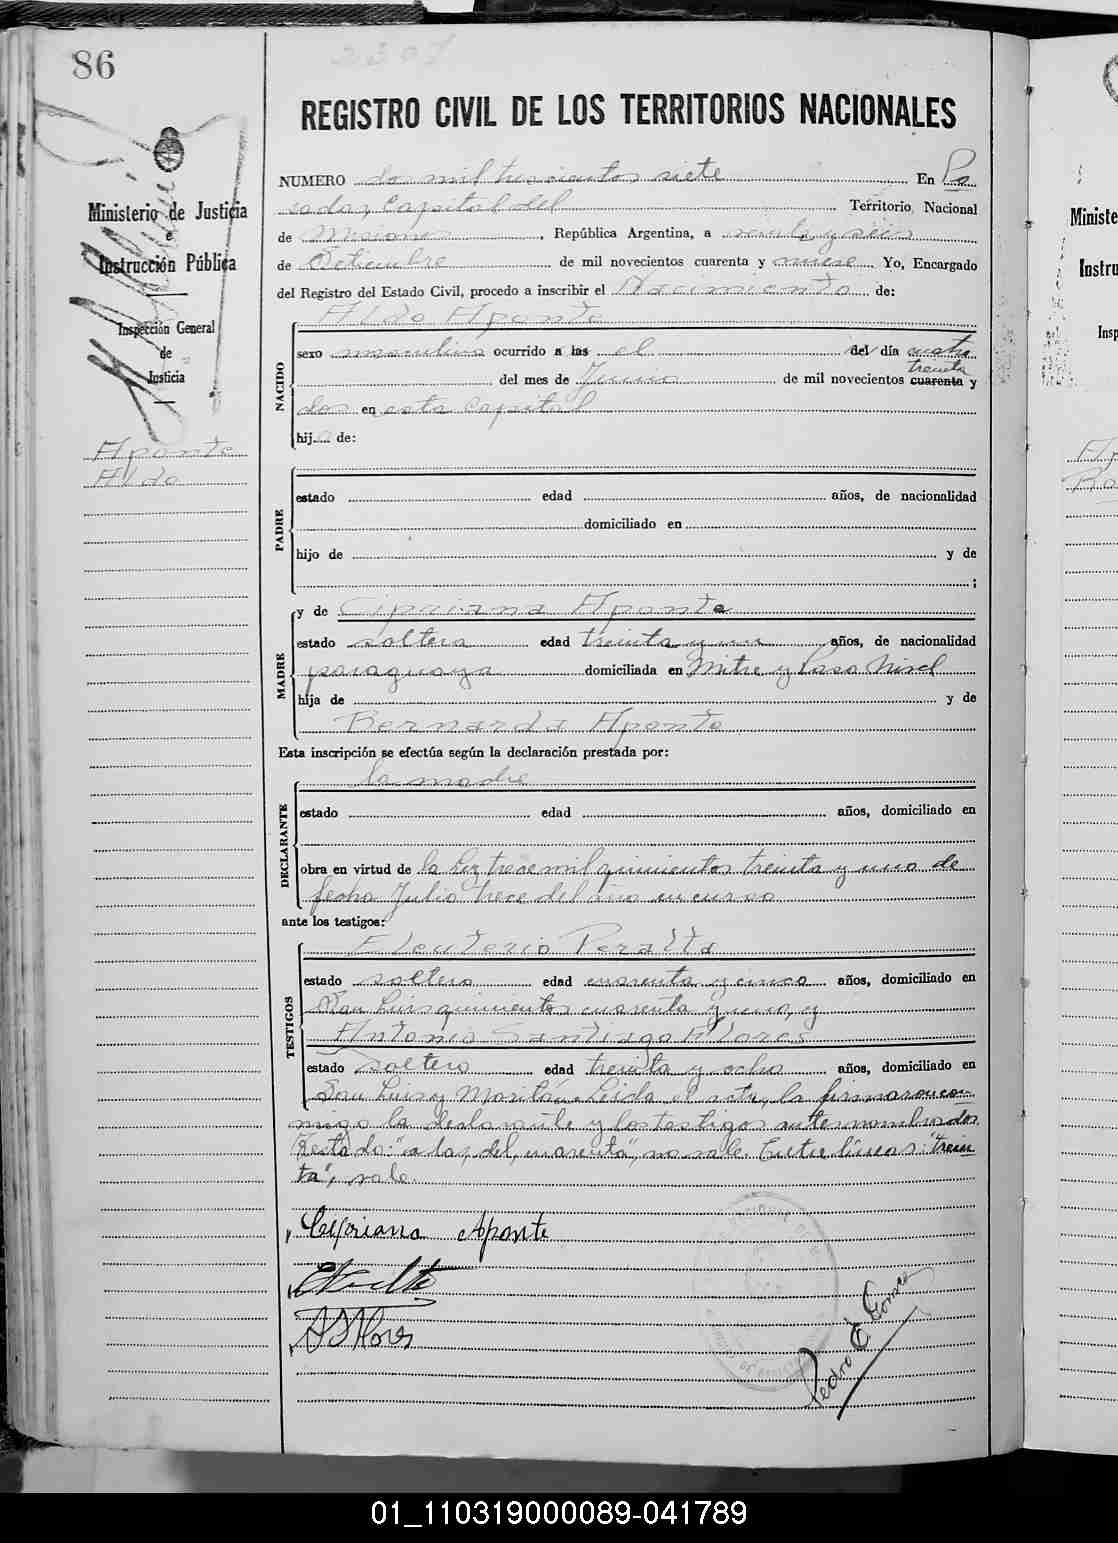 86
2307
REGISTRO CIVIL DE LOS TERRITORIOS NACIONALES
Ministerio de Justicia
e
Instrucción Pública
Inspección General
de
Justicia
Aponte
Aldo
NUMERO dos mil trescientos siete En Po
sadas, Capital del Territorio Nacional
de Misiones, República Argentina, a veinte y seis
de Setiembre de mil novecientos cuarenta y nueve Yo, Encargado
del Registro del Estado Civil, procedo a inscribir el Nacimiento de:
NACIDO
Aldo Aponte
sexo masculino ocurrido a las el del día cuatro
treinta
del mes de Junio de mil novecientos cuarenta y
dos en esta Capital
hij de:
PADRE
estado edad años, de nacionalidad
domiciliado en
hijo de y de
;
MADRE
y de Cipriana Aponte
estado soltera edad treinta y un años, de nacionalidad
paraguaya domiciliada en Mitre y Paso Nivel
hija de y de
Bernarda Aponte
Esta inscripción se efectúa según la declaración prestada por:
la madre
DECLARANTE
estado edad años, domiciliado en
obra en virtud de la Ley trece mil quinientos treinta y uno de
fecha Julio trece del año en curso
ante los testigos:
TESTIGOS
Eleuterio Peralta
estado soltero edad cuarenta y cinco años, domiciliado en
San Luis quinientos cuarenta y uno, y
Antonio Santiago Flores
estado Soltero edad treinta y ocho años, domiciliado en
San Luis y Maritán. Leida el acta, la firmaron con
migo la declarante y los testigos antes nombrados.
Testado: "a las, del, cuarenta", no vale. Entre líneas: "trein
ta", vale.
Cipriana Aponte
A S Flores
Pedro E
Ministe
Instru
Insp
01_110319000089-041789